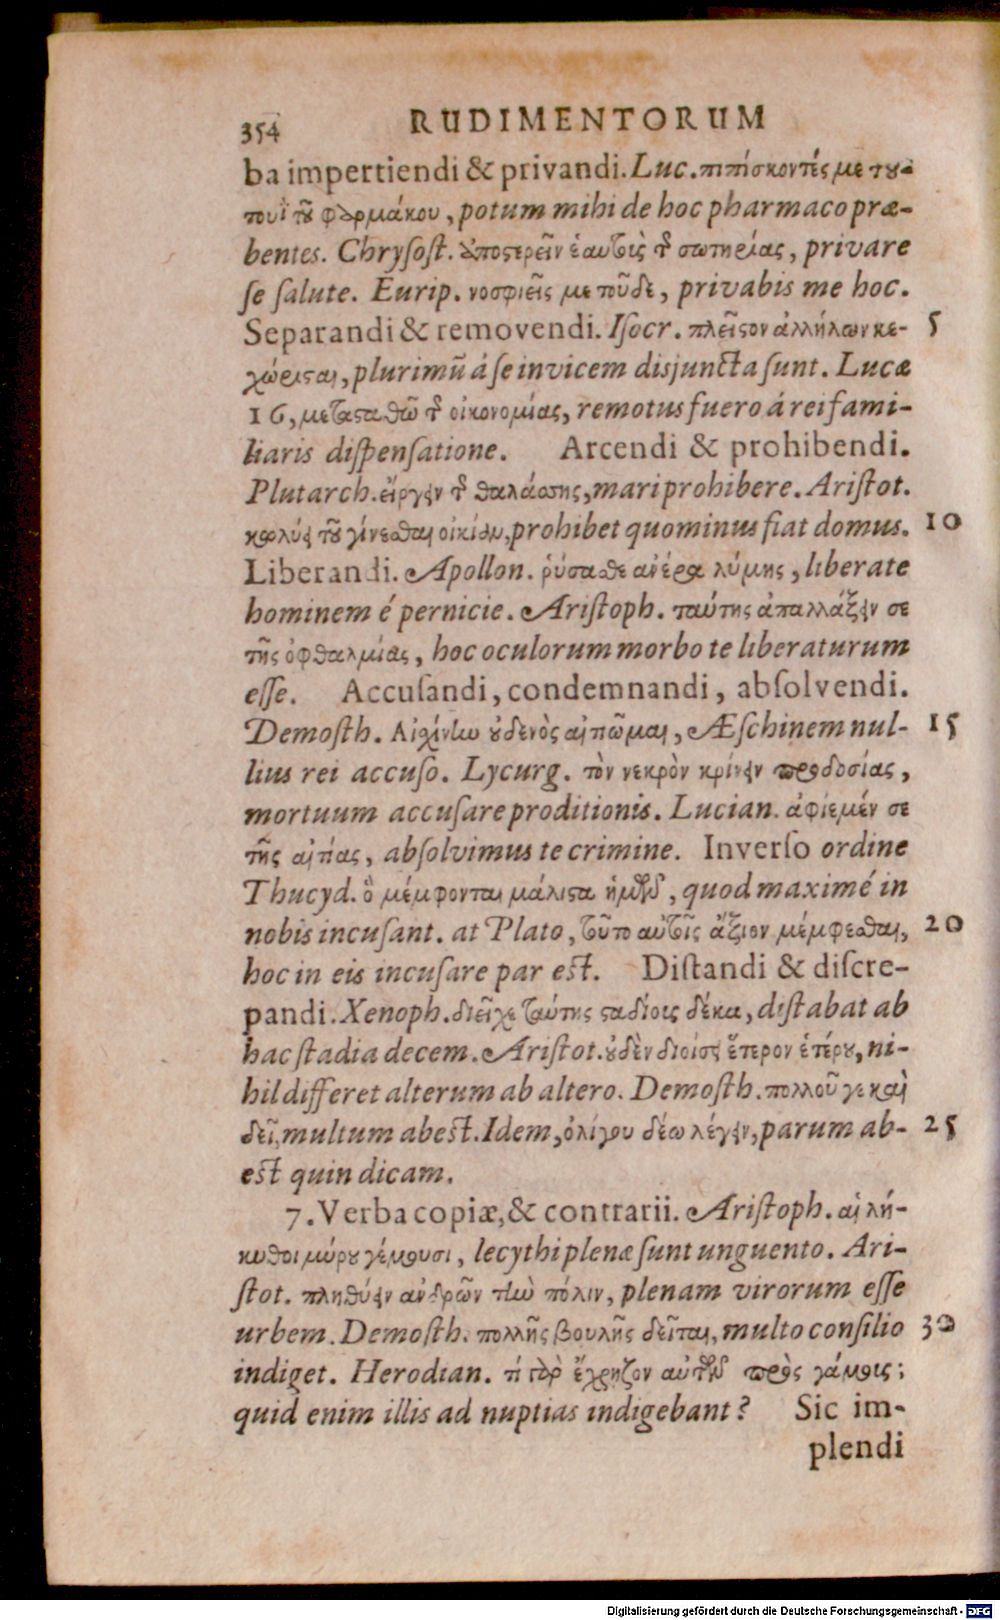 354 RUDIMENTORUM
ba impertiendi & privandi. Luc. πιπίσκοντές με του-
πουῒ τοῦ φαρμάκου, potum mihi de hoc pharmaco præ-
bentes. Chrysost. ἀποστερεῖν ἑαυτοὺς τῆς σωτηρίας, privare
se salute. Eurip. νοσφιεῖς με τοῦδε, privabis me hoc.
Separandi & removendi. Isocr. πλεῖστον ἀλλήλων κε- 5
χώρισται, plurimũ á se invicem disjuncta sunt. Lucæ
16, μετασταθῶ τῆς οἰκονομίας, remotus fuero á rei fami-
liaris dispensatione. Arcendi & prohibendi.
Plutarch. εἴργειν τῆς θαλάσσης, mari prohibere. Aristot.
κωλύει τοῦ γίνεσθαι οἰκίαν, prohibet quominus fiat domus. 10
Liberandi. Apollon. ῥύσασθε ἀνέρα λύμης, liberate
hominem é pernicie. Aristoph. ταύτης ἀπαλλάξειν σε
τῆς ὀφθαλμίας, hoc oculorum morbo te liberaturum
esse. Accusandi, condemnandi, absolvendi.
Demosth. Αἰσχίνην οὐδενὸς αἰτιῶμαι, Æschinem nul- 15
lius rei accuso. Lycurg. τὸν νεκρὸν κρίνειν προδοσίας,
mortuum accusare proditionis. Lucian. ἀφίεμέν σε
τῆς αἰτίας, absolvimus te crimine. Inverso ordine
Thucyd. ὃ μέμφονται μάλιστα ἡμῶν, quod maximé in
nobis incusant. at Plato, τοῦτο αὐτοῖς ἄξιον μέμφεσθαι, 20
hoc in eis incusare par est. Distandi & discre-
pandi. Xenoph. διεῖχε ταύτης σταδίοις δέκα, distabat ab
hac stadia decem. Aristot. οὐδὲν διοίσει ἕτερον ἑτέρου, ni-
hil differet alterum ab altero. Demosth. πολλοῦ γε καὶ
δεῖ, multum abest. Idem, ὀλίγου δέω λέγειν, parum ab- 25
est quin dicam.
7. Verba copiæ, & contrarii. Aristoph. αἱ λή-
κυθοι μύρου γέμουσι, lecythi plenæ sunt unguento. Ari-
stot. πληθύειν ἀνδρῶν τὴν πόλιν, plenam virorum esse
urbem. Demosth. πολλῆς βουλῆς δεῖται, multo consilio 30
indiget. Herodian. τί γὰρ ἔχρηζον αὐτῶν πρὸς γάμους;
quid enim illis ad nuptias indigebant? Sic im-
plendi
Digitalisierung gefördert durch die Deutsche Forschungsgemeinschaft - DFG